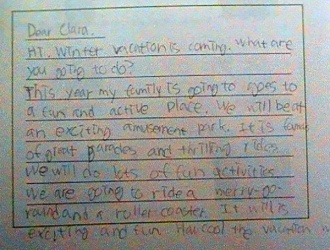 Dear Clara,
Hi. Winter vacation is coming. What are
you going to do?
This year my family is going to goes to
a fun and active place. We will be at
an exciting amusement park. It is
of great parades and thrilling rides
we will do lots of fun activities
We are going to ride a merry-go-
round and a roller coaster. It will is
exciting and fun. How cool the vacation